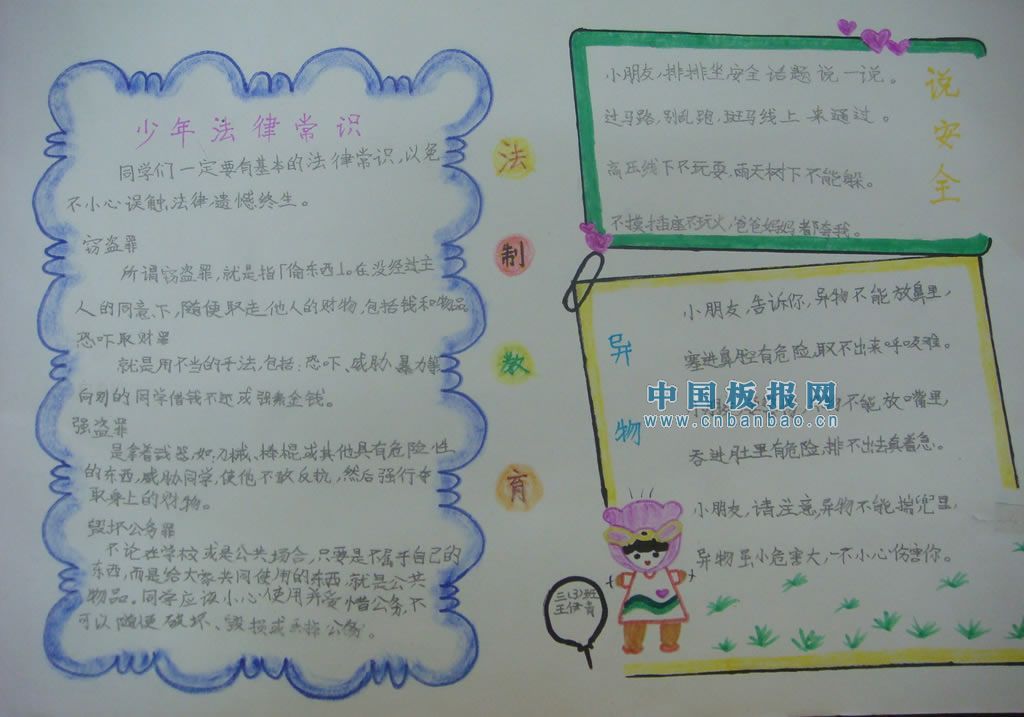 少年法律常识
同学们一定要有基本的法律常识,以免
不小心误触法律遗憾终生。
窃盗罪
所谓窃盗罪,就是指「偷东西」。在没经过主
人的同意下,随便取走他人的财物,包括钱和物品
恐吓取财罪
就是用不当的手法,包括:恐吓、威胁、暴力等
向别的同学借钱不还或强索金钱。
强盗罪
是拿着武器,如刀械、棒棍或其他具有危险性
的东西,威胁同学,使他不敢反抗,然后强行夺
取身上的财物。
毁坏公务罪
不论在学校或是公共场合,只要是不属于自己的
东西,而是给大家共同使用的东西,就是公共
物品。同学应该小心使用并爱惜公务,不
可以随便破坏、毁损或丢掉公务。
法
制
教
育
说安全
小朋友,排排坐,安全话题说一说。
过马路,别乱跑,斑马线上来通过。
高压线下不玩耍,雨天树下不能躲。
不摸插座不玩火,爸爸妈妈都夸我。
异物
小朋友,告诉你,异物不能放鼻里,
塞进鼻腔有危险,取不出来呼吸难。
不能放嘴里,
吞进肚里有危险,排不出去真着急。
小朋友,请注意,异物不能揣兜里,
异物虽小危害大,一不小心伤害你。
中国板报网
www.cnbanbao.cn
三(3)班
王伊